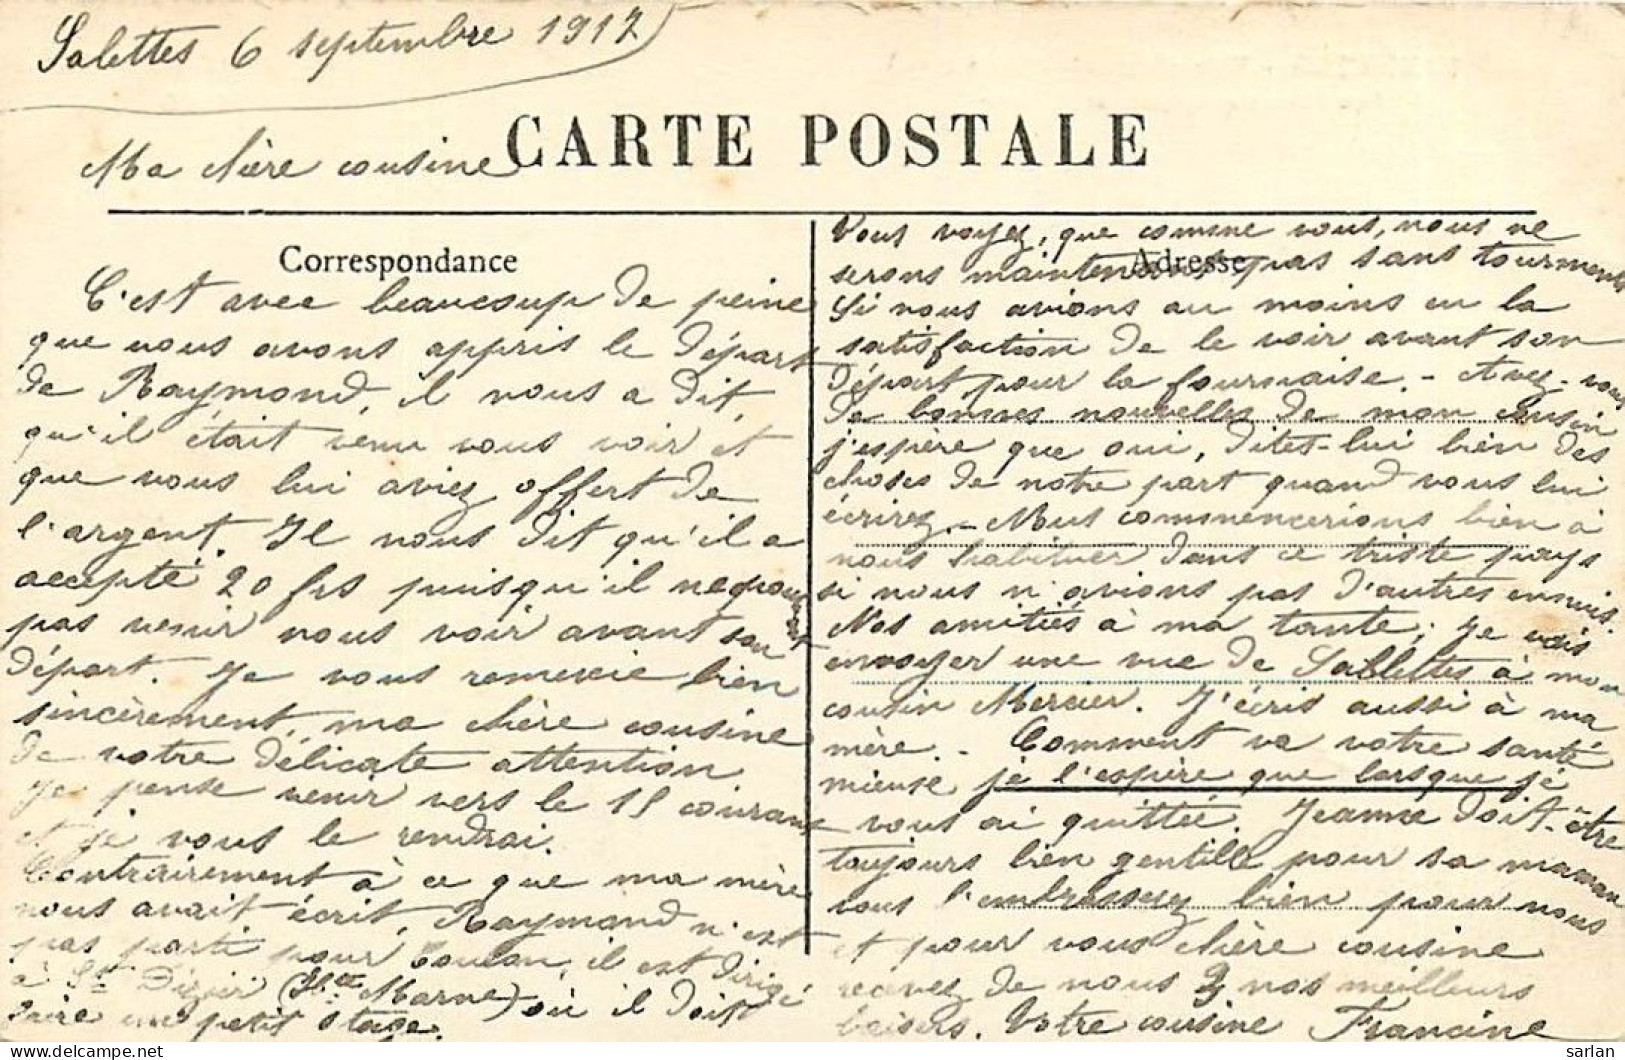 Salettes 6 septembre 1917
CARTE POSTALE
Ma chère cousine
Correspondance
C'est avec beaucoup de peine
que nous avons appris le départ
de Raymond, il nous a dit
qu'il était venu vous voir et
que vous lui aviez offert de
l'argent. Il nous dit qu'il a
accepté 20 frs puisqu'il ne pouvait
pas venir nous voir avant son
départ. Je vous remercie bien
sincèrement, ma chère cousine
de votre délicate attention
Je pense venir vers le 15 courant
et je vous le rendrai.
Contrairement à ce que ma mère
nous avait écrit, Raymond n'est
pas parti pour Toulon, il est dirigé
à St Dizier (Hte Marne) où il doit
faire un petit stage.
Adresse
Vous voyez, que comme vous, nous ne
serons maintenant pas sans tourments
Si nous avions au moins eu la
satisfaction de le voir avant son
départ pour la fournaise. - Avez-vous
de bonnes nouvelles de mon cousin
j'espère que oui, dites-lui bien des
choses de notre part quand vous lui
écrirez. - Nous commencerions bien à
nous habituer dans ce triste pays
si nous n'avions pas d'autres ennuis.
Nos amitiés à ma tante; je vais
envoyer une vue de Sallettes à mon
cousin Mercier. J'écris aussi à ma
mère. - Comment va votre santé
mieuse je l'espère que lorsque je
vous ai quittée. Jeanne doit-être
toujours bien gentille pour sa maman
vous l'embrasserez bien pour nous
et pour vous chère cousine
recevez de nous 3 nos meilleurs
baisers. Votre cousine Francine
sarlan